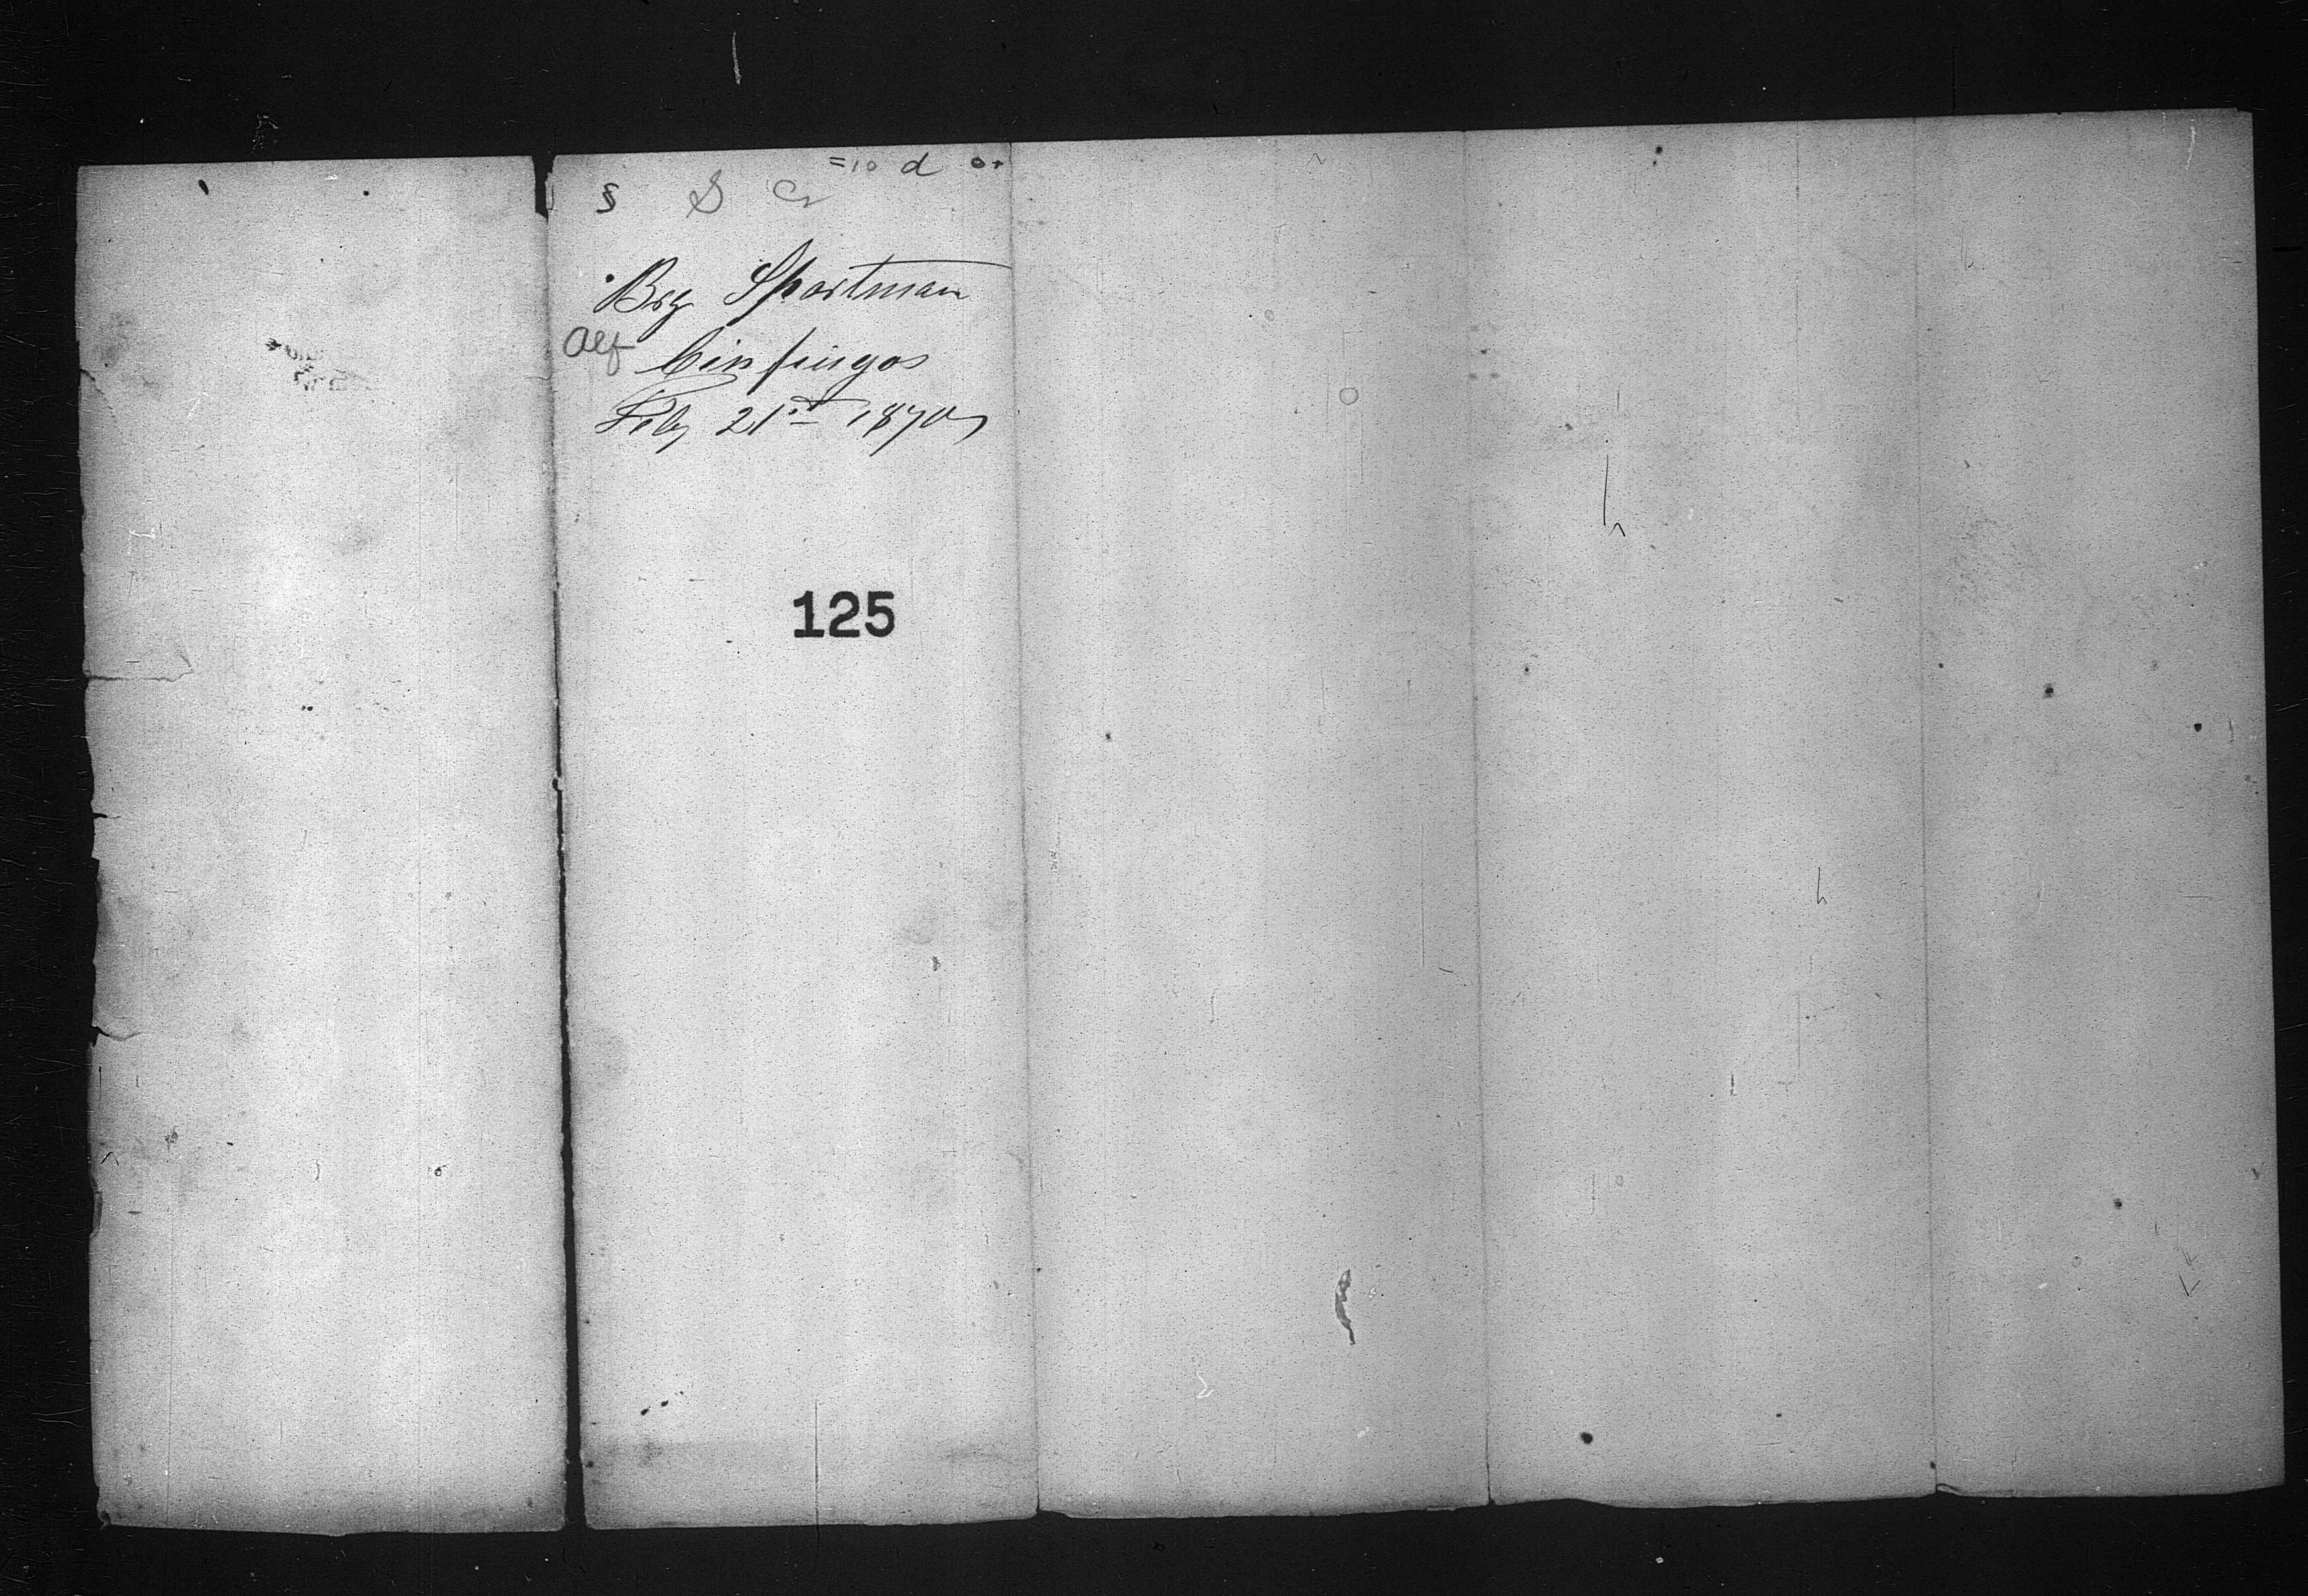 =10 d
§ S Cr
Brg Sportman
Alf Cinfuegos
Feby 21st 1870
125